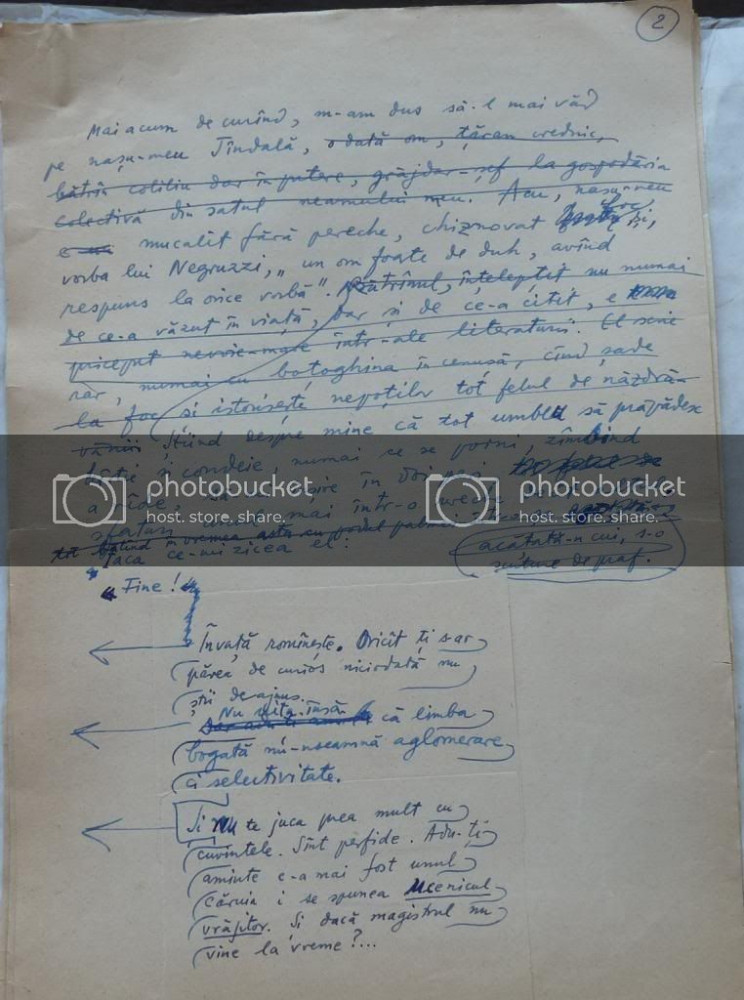 2
Mai acum de curînd, m-am dus să-l mai văd
pe nașu-meu Tîndală, o dată om, țăran vrednic,
bătrîn dar în putere, grăjdar-șef la gospodăria
colectivă din satul neamului meu. Acu, nașu-meu
mucalit fără pereche, chiznovat și,
vorba lui Negruzzi, „un om foate de duh, avînd
respuns la orice vorbă". Bătrînul, înțelepțit nu numai
de ce-a văzut în viață, dar și de ce-a citit, e
priceput nevoie-mare într-ale literaturii. El scrie
rar, numai cu botoghina în cenușă, cînd șade
la foc și istorisește nepoților tot felul de năzdră-
vănii. Știind despre mine că tot umblu să prăpădesc
și condeie, numai ce se porni, zîmbind
a rîde, în
sfaturi mai într-o
tot bătînd în vremea asta cu podul palmei
acățată-n cui, s-o
Iaca ce-mi zicea el:
scuture de praf.
„Fine!
Învață romînește. Oricît ți s-ar
părea de curios niciodată nu
știi de ajuns.
Nu uita însă
că limba
bogată nu-nseamnă aglomerare
ci selectivitate.
Și nu te juca prea mult cu
cuvintele. Sînt perfide. Adu-ți
aminte c-a mai fost unul
căruia i se spunea Ucenicul
vrăjitor. Și dacă magistrul nu
vine la vreme?...
photobucket
host. store. share.
photobucket
host. store. share.